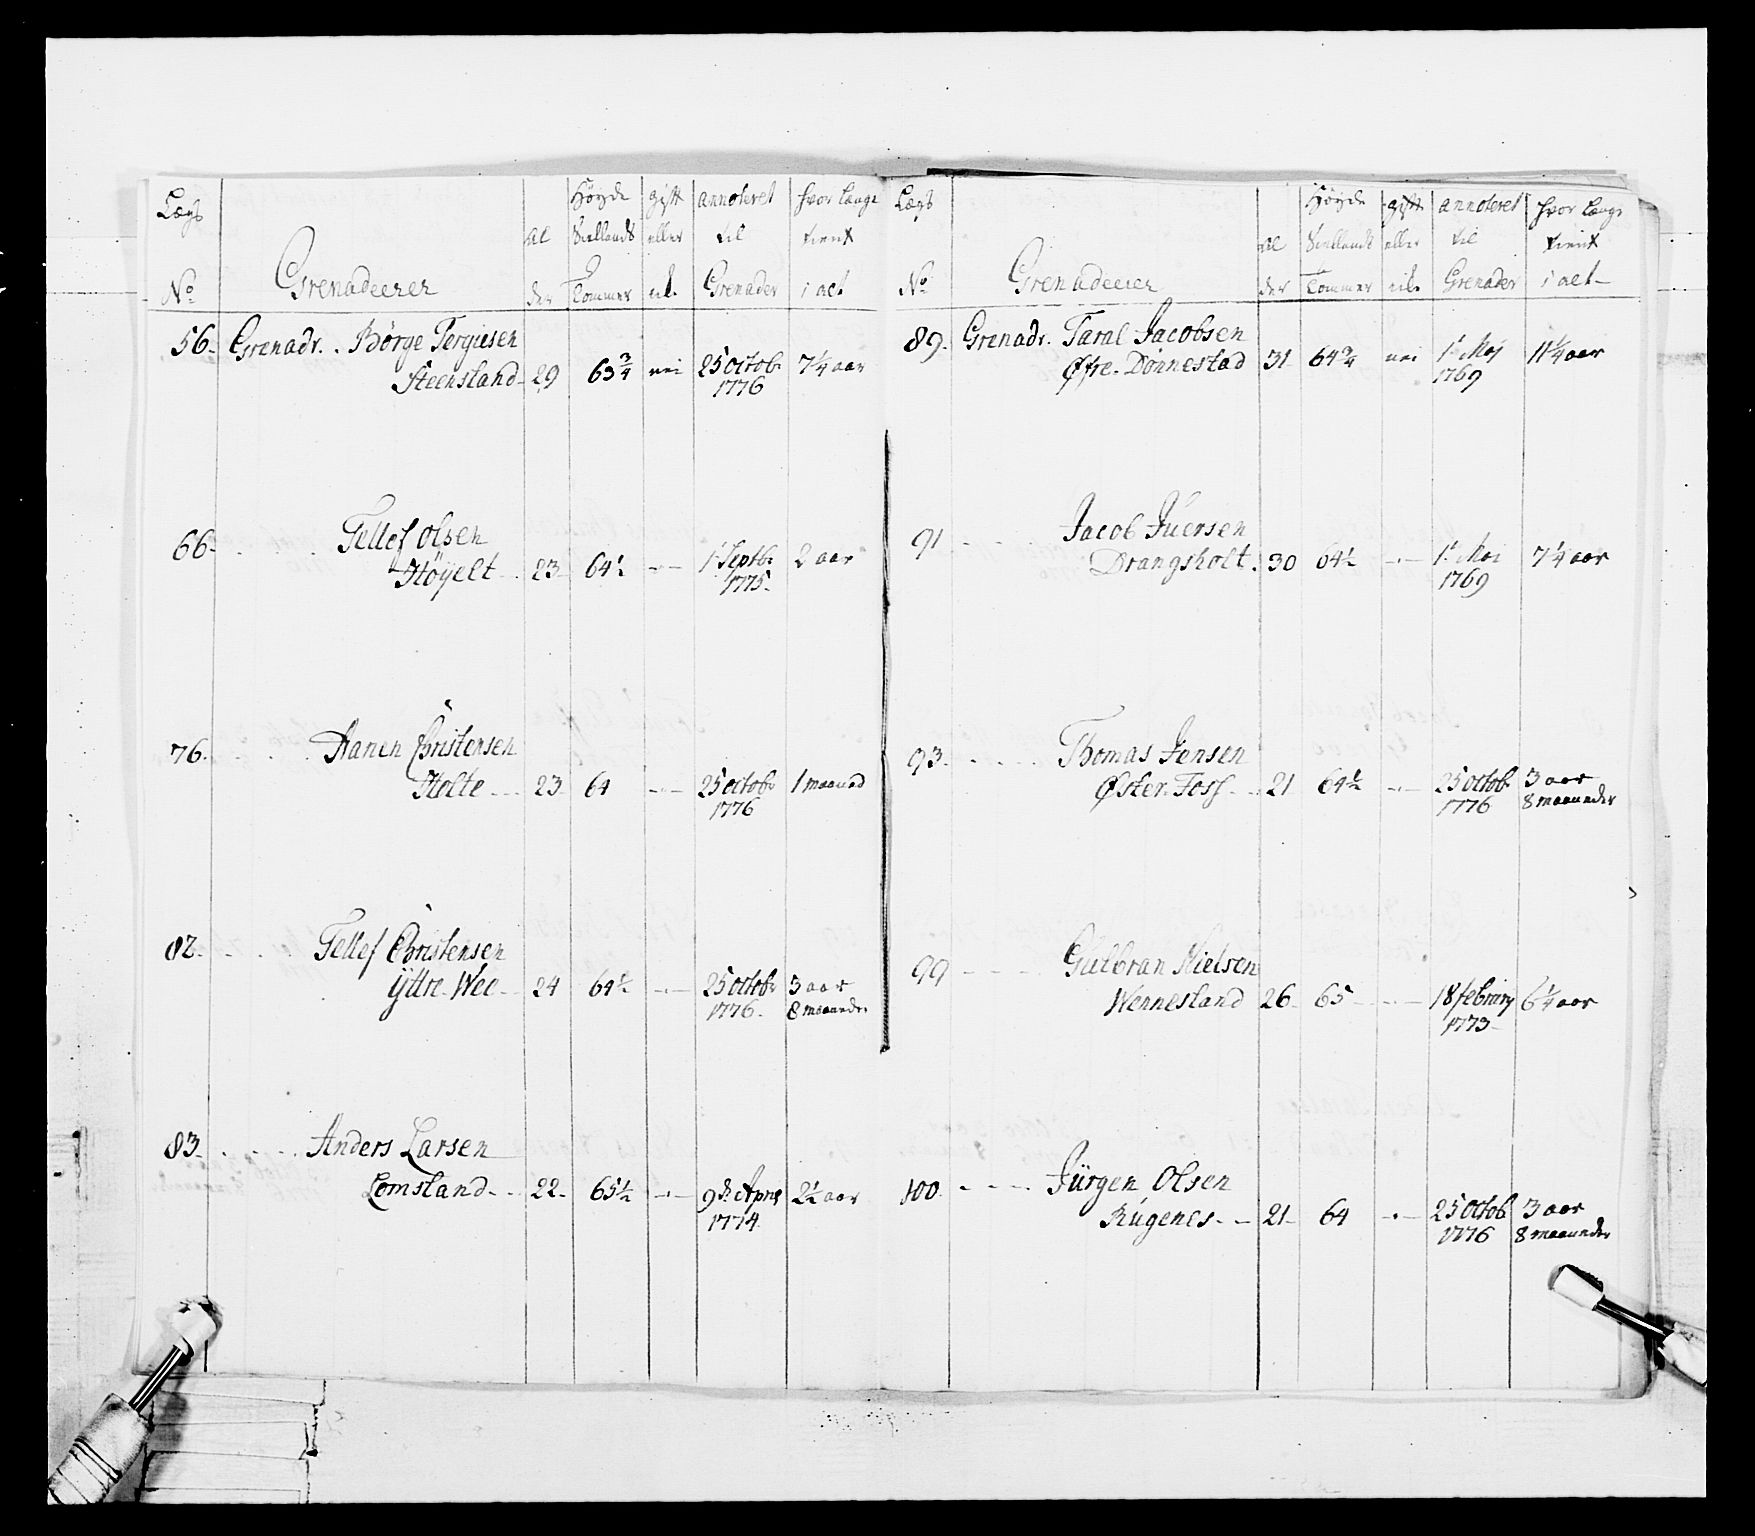 Lægs
No
Grenadeerer
Al
der
Høyde
Siellands
Tommer
gift
eller
annoteret
til
Grenader
hvor længe
tient
i alt
56. Grenadr. Børge Tergiesen
Steensland 29 63 3/4 nei 25 octob. 7 1/4 aar
1776
66. Tellef Olsen
Høyelt 23 64 1/2 1 Septbr. 2 aar
1775.
76. Aanen Christensen
Holte 23 64 25 octobr 1 maaned
1776
82. Tellef Christensen
Yttre Wee 24 64 1/2 25 octobr 3 aar
1776. 8 maaneder
83. Anders Larsen
Lomsland 22. 65 1/2 9d. April 2 1/2 aar
1774
Lægs
No
Grenadeerer
Al
der
Høyde
Siellands
Tommer
gift
eller
annoteret
til
Grenader
hvor længe
tient
i alt
89. Grenadr. Taral Jacobsen
Øfre Dønnestad 31 64 3/4 nei 1 Maj 11 1/4 aar
1769
91 Jacob Juersen
Drangsholt. 30 64 1/2 1 Mai 7 1/4 aar
1769
93. Thomas Jensen
Øster Foss 21 64 1/2 25 octob. 3 aar
1776 8 maaneder
99 Gulbran Nielsen
Wennesland 26 65 18 febriary 6 1/4 aar
1773
100. Jürgen Olsen
Rugenes 21 64 25 octob 3 aar
1776 8 maaneder